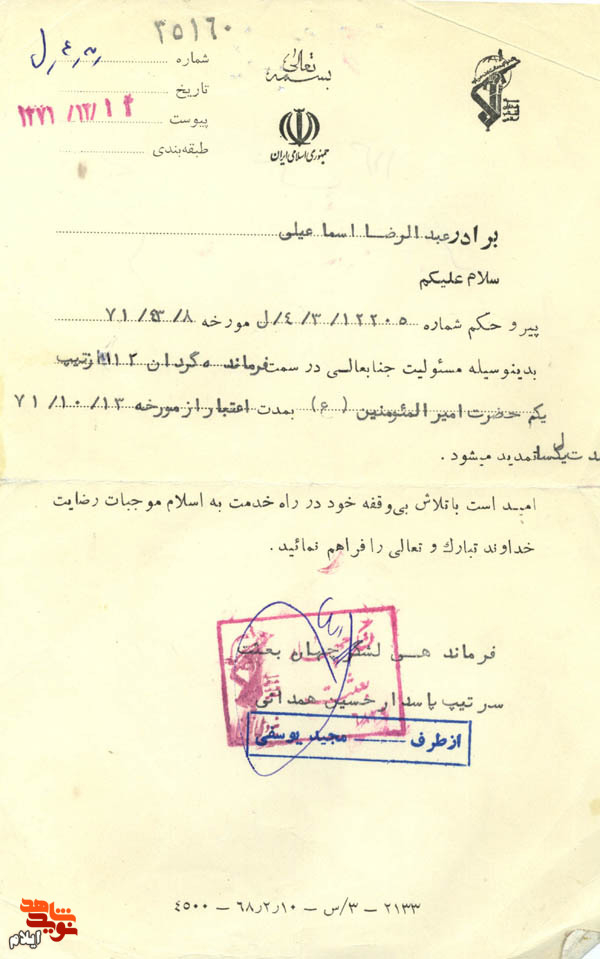 ۳۵۱۶۰
بسمه تعالی
جمهوری اسلامی ایران
شماره
تاریخ
پیوست ۱۳۷۱/۱۲/۱۴
طبقه‌بندی
برادر عبدالرضا اسماعیلی
سلام علیکم
پیرو حکم شماره ۱۲۲۰۵/۳/۴/ل مورخه ۷۱/۴۳/۸
بدینوسیله مسئولیت جنابعالی در سمت فرمانده گردان ۱۱۲ از تیپ
یکم حضرت امیرالمئومنین (ع) بمدت اعتبار از مورخه ۷۱/۱۰/۱۳
تمدید میشود.
امید است با تلاش بی‌وقفه خود در راه خدمت به اسلام موجبات رضایت
خداوند تبارک و تعالی را فراهم نمائید.
فرماندهی لشگر بعثت
سرتیپ پاسدار حسین همدانی
از طرف — مجید یوسفی
۲۱۳۳ - ۳/س - ۶۸/۲/۱۰ - ۴۵۰۰
نوید شاهد
ایلام